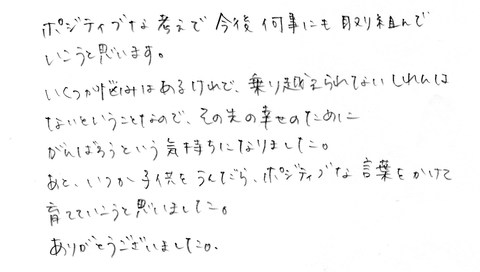 ポジティブな考えで今後何事にも取り組んで
いこうと思います。
いくつか悩みはあるけれど、乗り越えられないしれんは
ないということなので、その先の幸せのために
がんばろうという気持ちになりました。
あと、いつか子供をうんだら、ポジティブな言葉をかけて
育てていこうと思いました。
ありがとうございました。